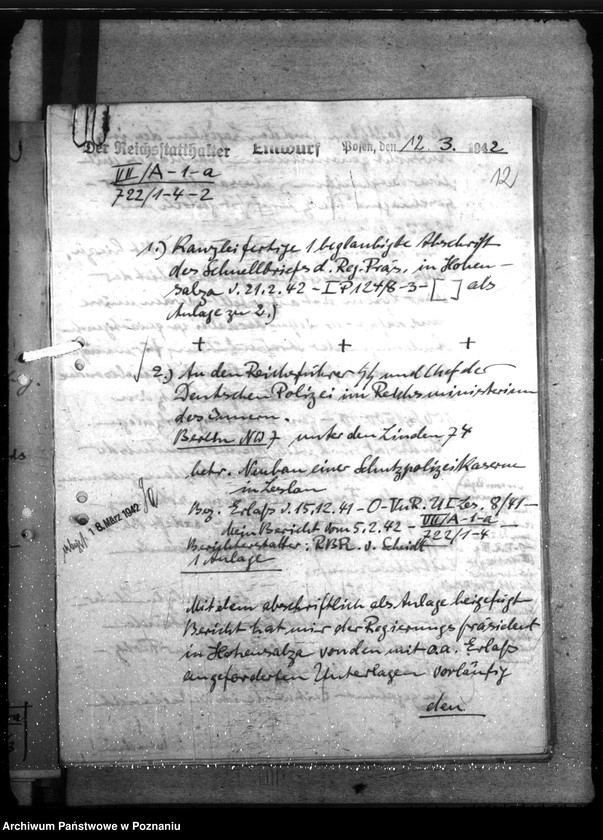 Der Reichsstatthalter Entwurf Posen, den 12. 3. 1942
VII/A-1-a
722/1-4-2
12
1.) Kanzleifertige 1 beglaubigte Abschrift
des Schnellbriefs d. Reg. Präs. in Hohen-
salza v. 21.2.42 - I P 1248-3-[ ] als
Anlage zu 2.)
+ + +
2.) An den Reichsführer SS und Chef der
Deutschen Polizei im Reichsministerium
des Innern.
Berlin NW 7 unter den Linden 74
betr. Neubau einer Schutzpolizei Kaserne
in Leslau
Bez. Erlaß v. 15.12.41 - O-VuR. U I Les. 8/41 -
Mein Bericht vom 5.2.42 - VII/A-1-a
722/1-4 -
Berichterstatter: RBR. v. Scheidt
1 Anlage
18. März 1942
Mit dem abschriftlich als Anlage beigefügt
Bericht hat mir der Regierungspräsident
in Hohensalza von den mit o.a. Erlaß
angeforderten Unterlagen vorläufig
den
Archiwum Państwowe w Poznaniu